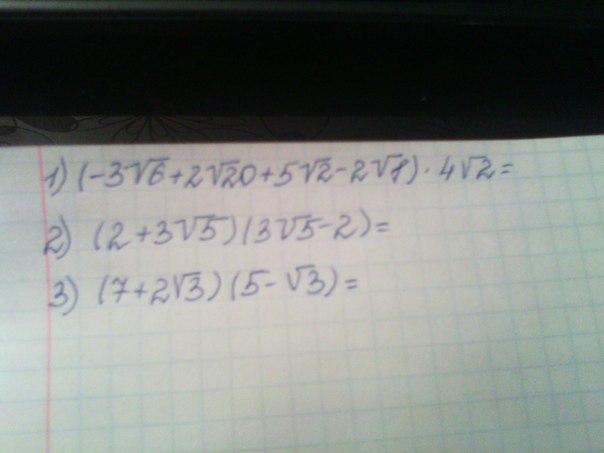 1) (-3√6+2√20+5√2-2√8)·4√2=
2) (2+3√5)(3√5-2)=
3) (7+2√3)(5-√3)=